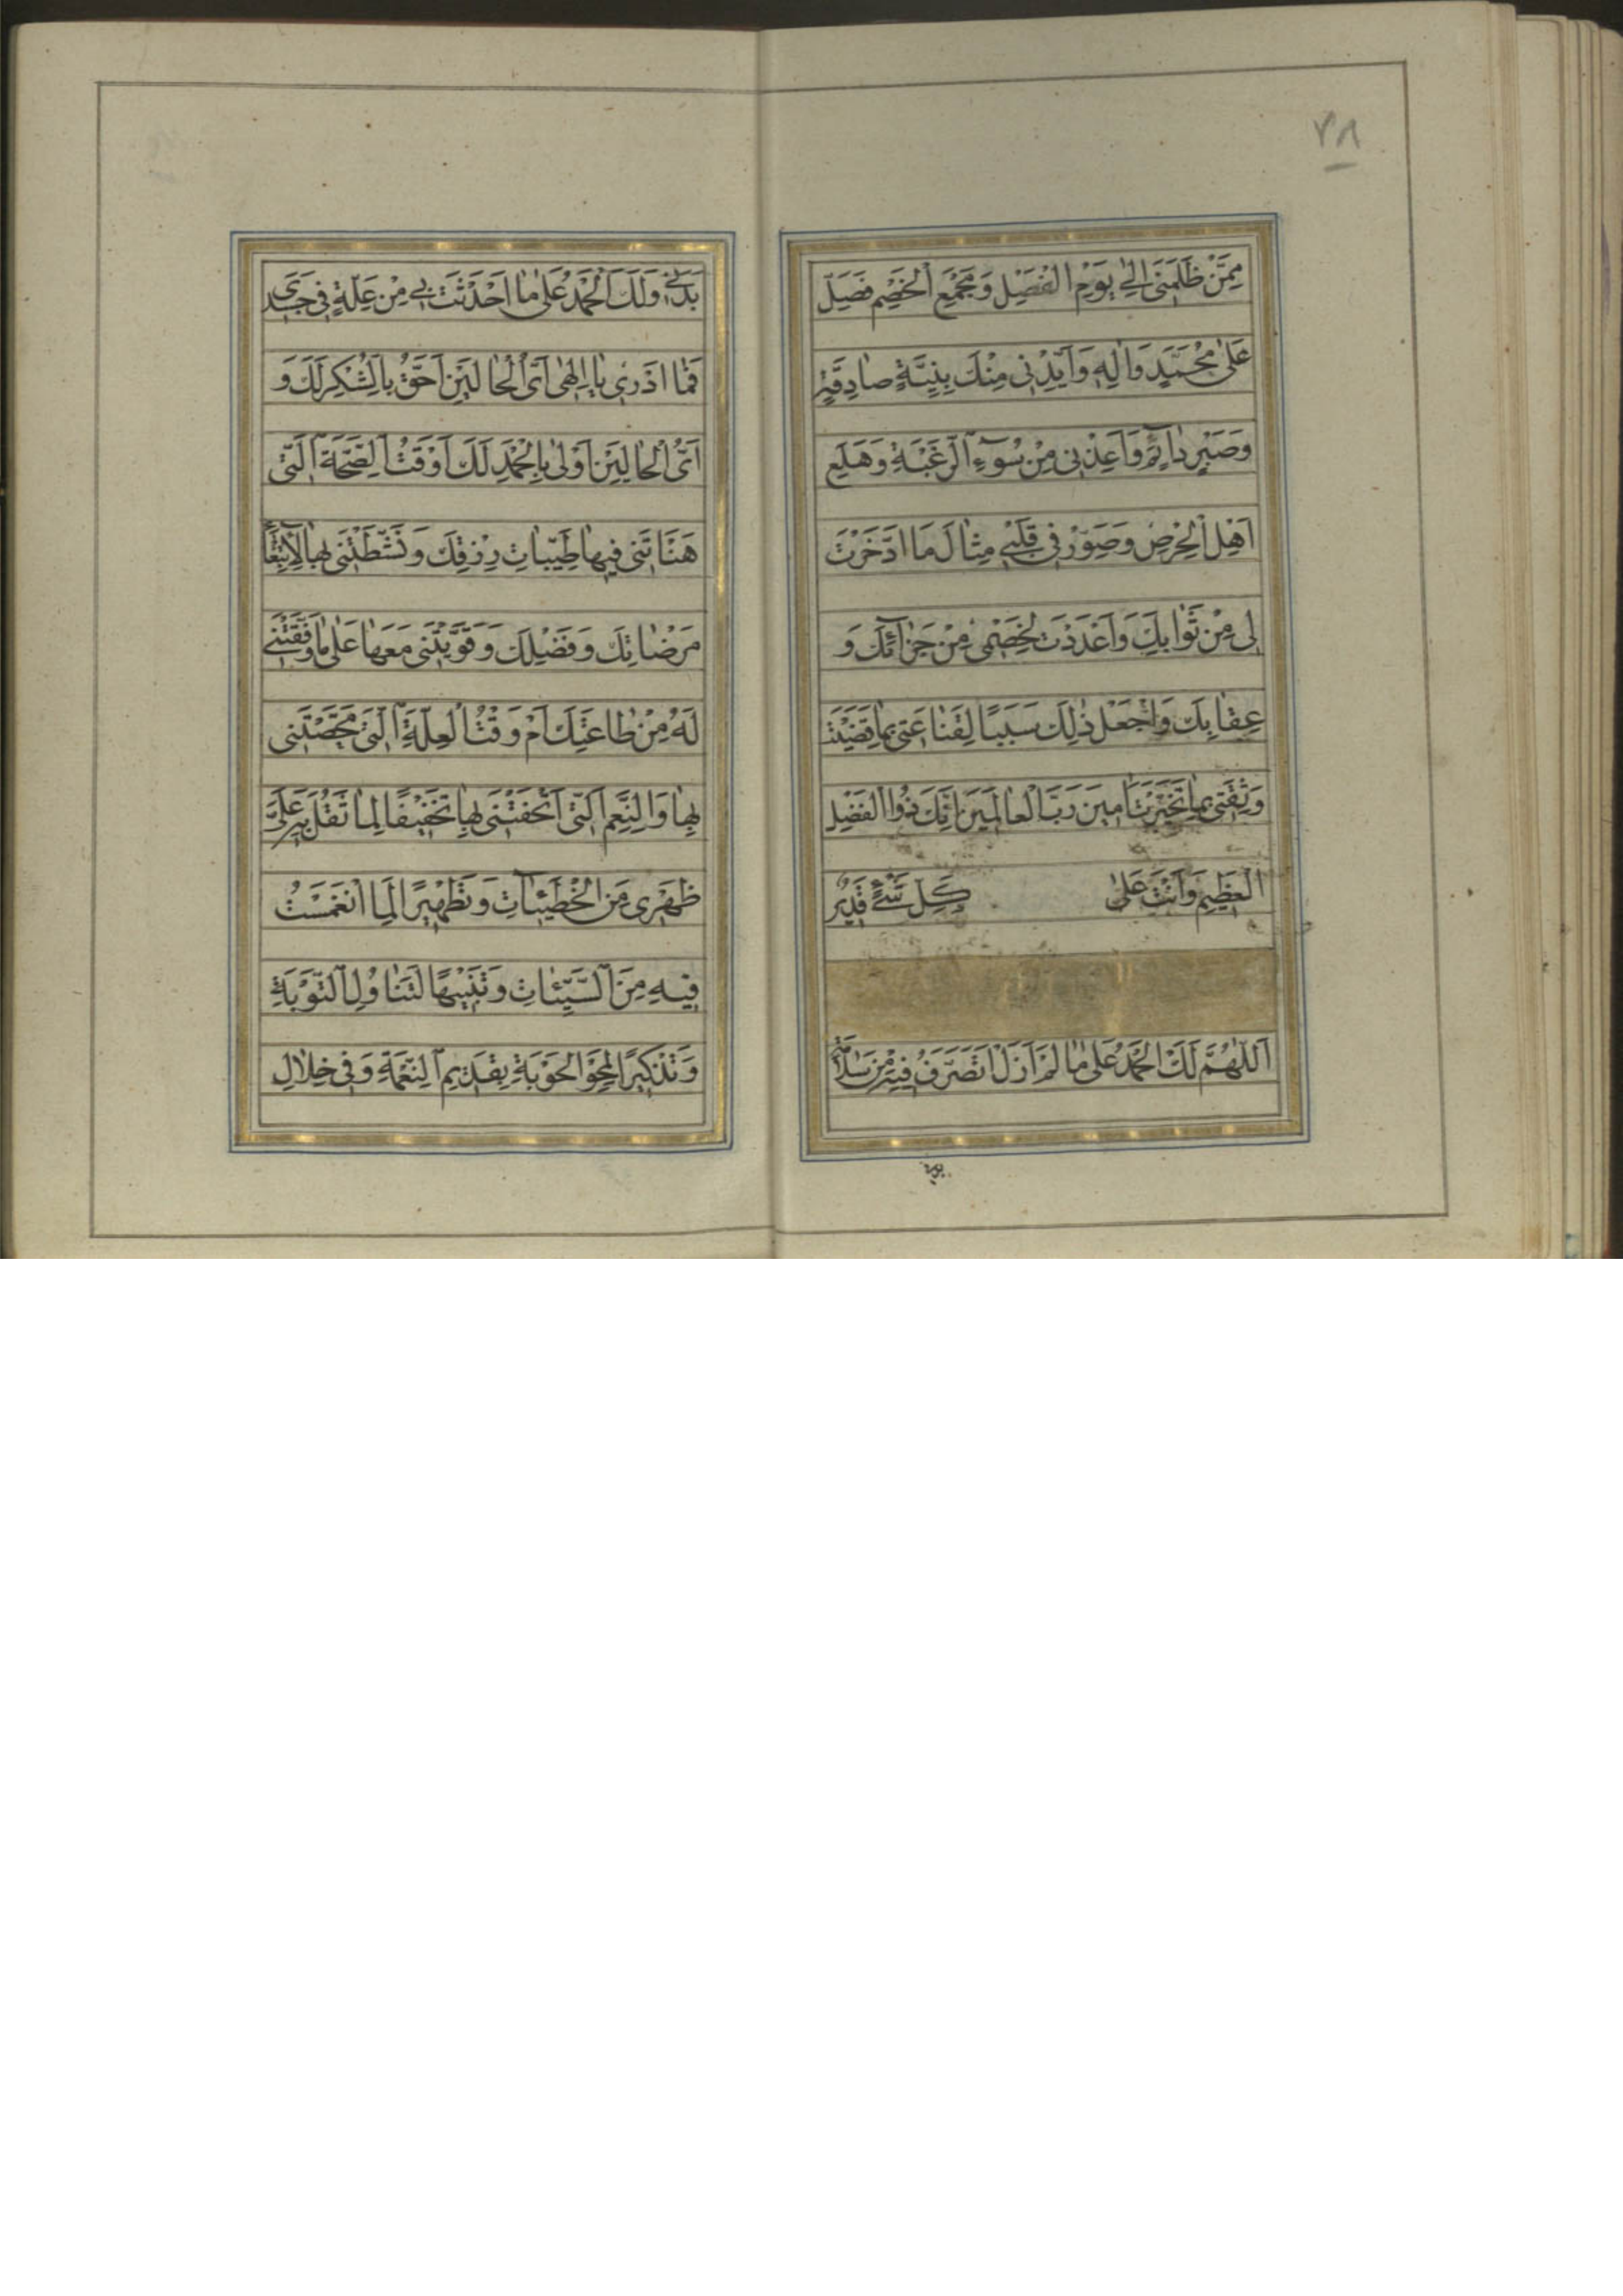 ٧٨
مِمَّنْ ظَلَمَنی اِلیٰ یَوْمِ الْفَصْلِ وَ مَجْمَعِ الْخَصْمِ فَصَلِّ
عَلیٰ مُحَمَّدٍ وَ اٰلِهِ وَ اَیِّدْنی مِنْكَ بِنِیَّةٍ صادِقَةٍ
وَ صَبْرٍ دآئِمٍ وَ اَعِذْنی مِنْ سُوٓءِ الرَّغْبَةِ وَ هَلَعِ
اَهْلِ الْحِرْصِ وَ صَوِّرْ فی قَلْبی مِثالَ مَا ادَّخَرْتَ
لی مِنْ ثَوابِكَ وَ اَعْدَدْتَ لِخَصْمی مِنْ جَزآئِكَ وَ
عِقابِكَ وَ اجْعَلْ ذٰلِكَ سَبَبًا لِقَناعَتی بِما قَضَیْتَ
وَ ثِقَتی بِما تَخَیَّرْتَ اٰمینَ رَبَّ الْعالَمینَ اِنَّكَ ذُوا الْفَضْلِ
الْعَظیمِ وَ اَنْتَ عَلیٰ كُلِّ شَیْءٍ قَدیرٌ
اَللّٰهُمَّ لَكَ الْحَمْدُ عَلیٰ ما لَمْ اَزَلْ اَتَصَرَّفُ فیهِ مِنْ سَلامَةِ
بَدَنی
بَدَنی وَ لَكَ الْحَمْدُ عَلیٰ ما اَحْدَثْتَ بی مِنْ عِلَّةٍ فی جَسَدی
فَما اَدْری یا اِلٰهی اَیُّ الْحالَیْنِ اَحَقُّ بِالشُّكْرِ لَكَ وَ
اَیُّ الْحالَیْنِ اَوْلیٰ بِالْحَمْدِ لَكَ اَوَقْتُ الصِّحَّةِ الَّتی
هَنَّاْتَنی فیها طَیِّباتِ رِزْقِكَ وَ نَشَّطْتَنی بِها لِابْتِغآءِ
مَرْضاتِكَ وَ فَضْلِكَ وَ قَوَّیْتَنی مَعَها عَلیٰ ما وَفَّقْتَنی
لَهُ مِنْ طاعَتِكَ اَمْ وَقْتُ الْعِلَّةِ الَّتی مَحَّصْتَنی
بِها وَ النِّعَمِ الَّتی اَتْحَفْتَنی بِها تَخْفیفًا لِما ثَقُلَ بِهِ عَلَیَّ
ظَهْری مِنَ الْخَطیٓئاتِ وَ تَطْهیرًا لِمَا انْغَمَسْتُ
فیهِ مِنَ السَّیِّئاتِ وَ تَنْبیهًا لِتَناوُلِ التَّوْبَةِ
وَ تَذْكیرًا لِمَحْوِ الْحَوْبَةِ بِقَدیمِ النِّعْمَةِ وَ فی خِلالِ